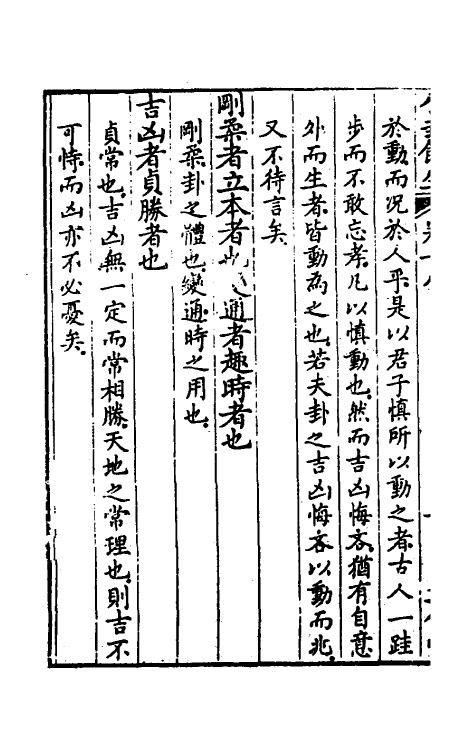 於動而况於人乎是以君子慎所以動之者古人一跬
步而不敢忘孝凡以慎動也然而吉凶悔吝猶有自意
外而生者皆動為之也若夫卦之吉凶悔吝以動而兆
又不待言矣
剛柔者立本者也 通者趣時者也
剛柔卦之體也變通時之用也
吉凶者貞勝者也
貞常也吉凶無一定而常相勝天地之常理也則吉不
可恃而凶亦不必憂矣